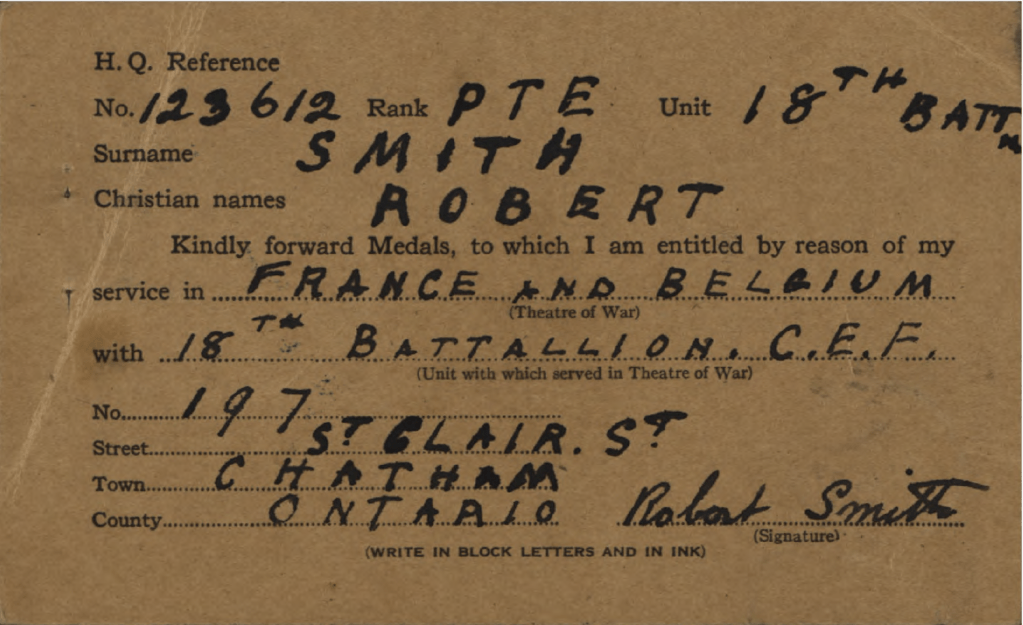 H. Q. Reference
No. 123612 Rank PTE Unit 18TH BATTN
Surname SMITH
Christian names ROBERT
Kindly forward Medals, to which I am entitled by reason of my
service in FRANCE AND BELGIUM
(Theatre of War)
with 18TH BATTALLION. C.E.F.
(Unit with which served in Theatre of War)
No. 197
Street ST CLAIR. ST
Town CHATHAM
County ONTARIO Robert Smith
(Signature)
(WRITE IN BLOCK LETTERS AND IN INK)